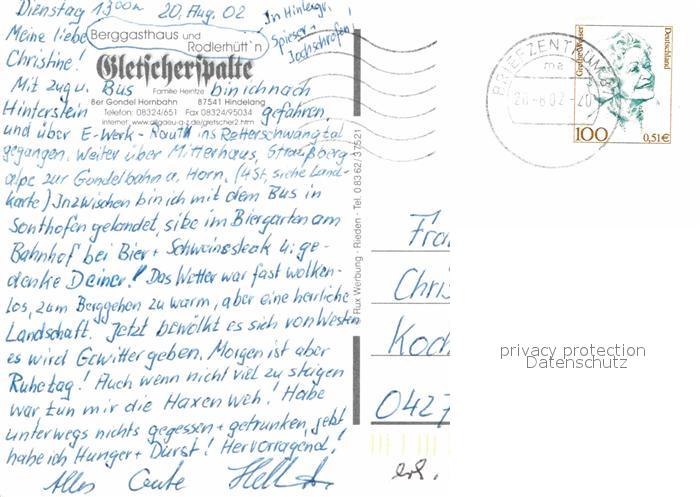 Dienstag 13 00h 20. Aug. 02
Meine liebe
Christine!
in Hintergr.
Spieser +
Jochschrofen!
Berggasthaus und
Rodlerhütt'n
Gletscherspalte
Familie Heintze
Ber Gondel Hornbahn 87541 Hindelang
Telefon: 08324/651 Fax 08324/95034
Mit Zug u. Bus bin ich nach
Hinterstein gefahren,
und über E-Werk - ins Retterschwangtal
gegangen. Weiter über Mitterhaus, Straußberg
alpe zur Gondelbahn a. Horn. (4 St. siehe Land-
karte) Inzwischen bin ich mit dem Bus in
Sonthofen gelandet, sitze im Biergarten am
Bahnhof bei Bier + Schweinsteak u. ge-
denke Deiner! Das Wetter war fast wolken-
los, zum Berggehen zu warm, aber eine herrliche
Landschaft. Jetzt bewölkt es sich von Westen
es wird Gewitter geben. Morgen ist aber
Ruhetag! Auch wenn nicht viel zu steigen
war tun mir die Haxen weh! Habe
unterwegs nichts gegessen + getrunken, jetzt
habe ich Hunger + Durst! Hervorragend!
Alles Gute
© Rux Werbung · Rieden · Tel. 0 83 62 / 3 75 21
BRIEFZENTRUM 87
ma
20-8.02-20
Grethe Weiser
Deutschland
100
0,51€
Fra
Chris
Koch
0427
erl.
privacy protection
Datenschutz